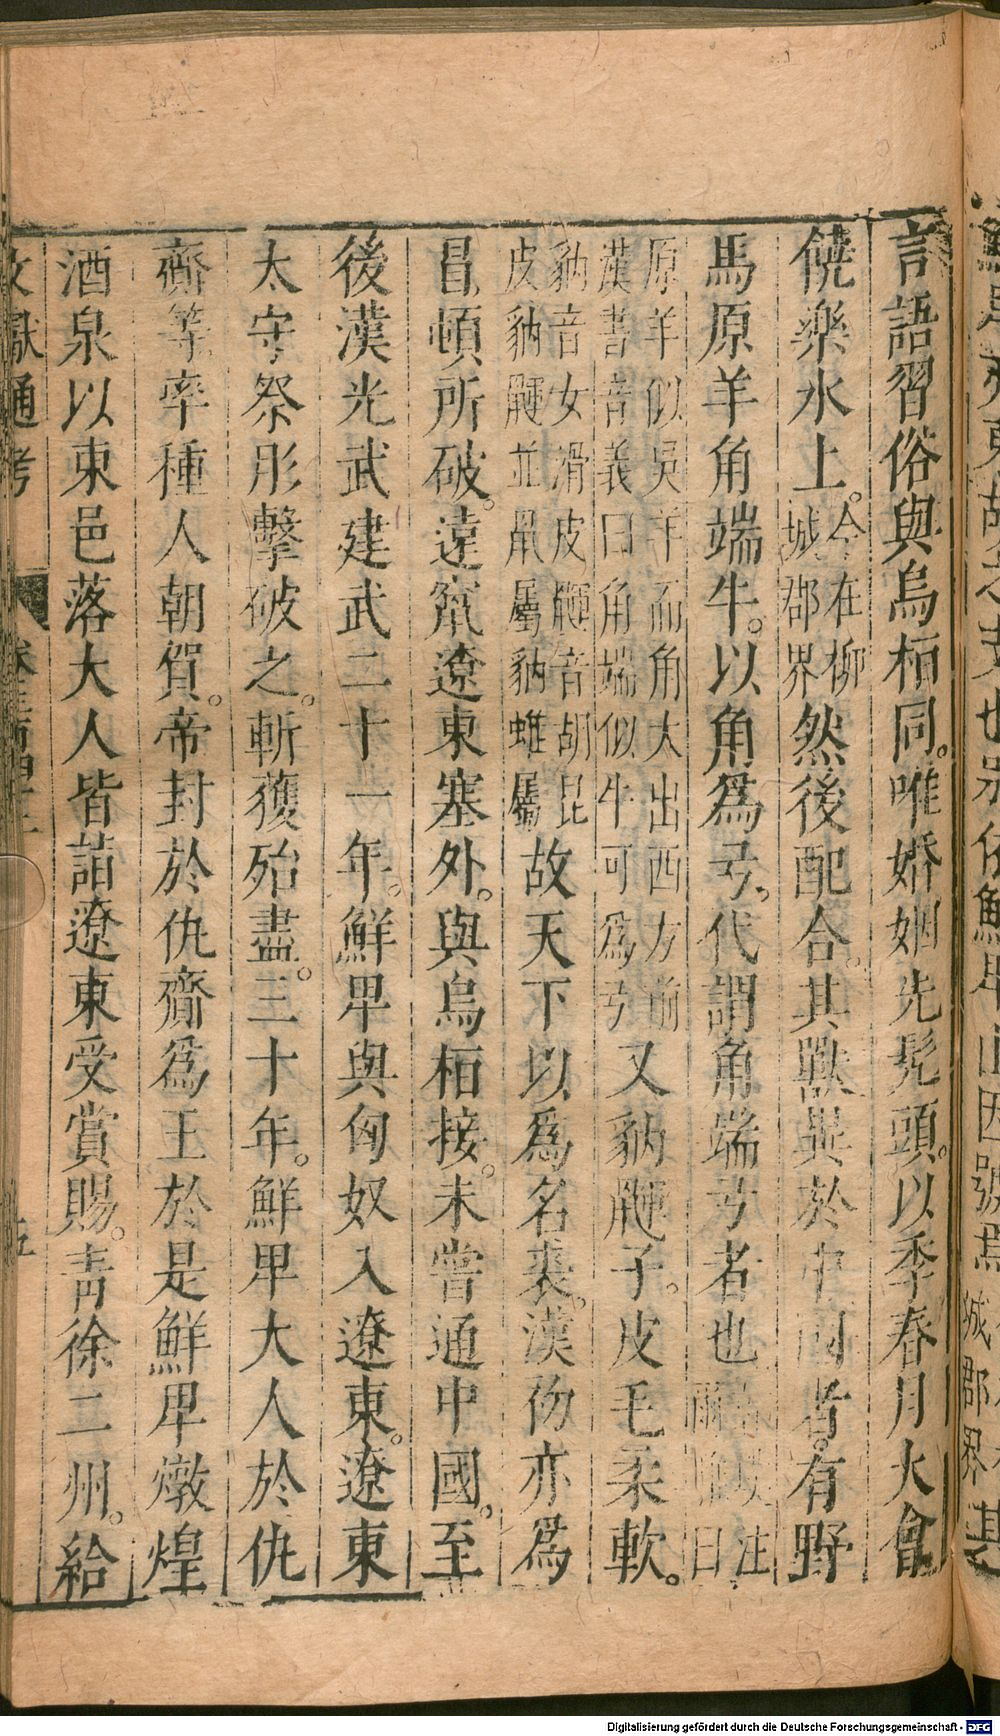 言語習俗與烏桓同。唯婚姻先髡頭。以季春月大會
饒樂水上。今在柳城郡界然後配合。其獸異於中國者。有野
馬原羊角端牛。以角為弓。代謂角端弓者也 注爾雅曰
原羊似吳羊而角大出西方前漢書音義曰角端似牛可為弓又豽䶎子。皮毛柔軟。
豽音女滑皮䶎音胡昆皮豽䶎並鼠屬豽蜼屬故天下以為名裘。漢初亦為
冒頓所破。遠竄遼東塞外。與烏桓接。未嘗通中國。至
後漢光武建武二十一年。鮮卑與匈奴入遼東。遼東
太守祭彤擊破之。斬獲殆盡。三十年。鮮卑大人於仇
齊等率種人朝賀。帝封於仇齊為王於是鮮卑燉煌
酒泉以東邑落大人皆詣遼東受賞賜。青徐二州。給
文獻通考 卷三百四十二 五